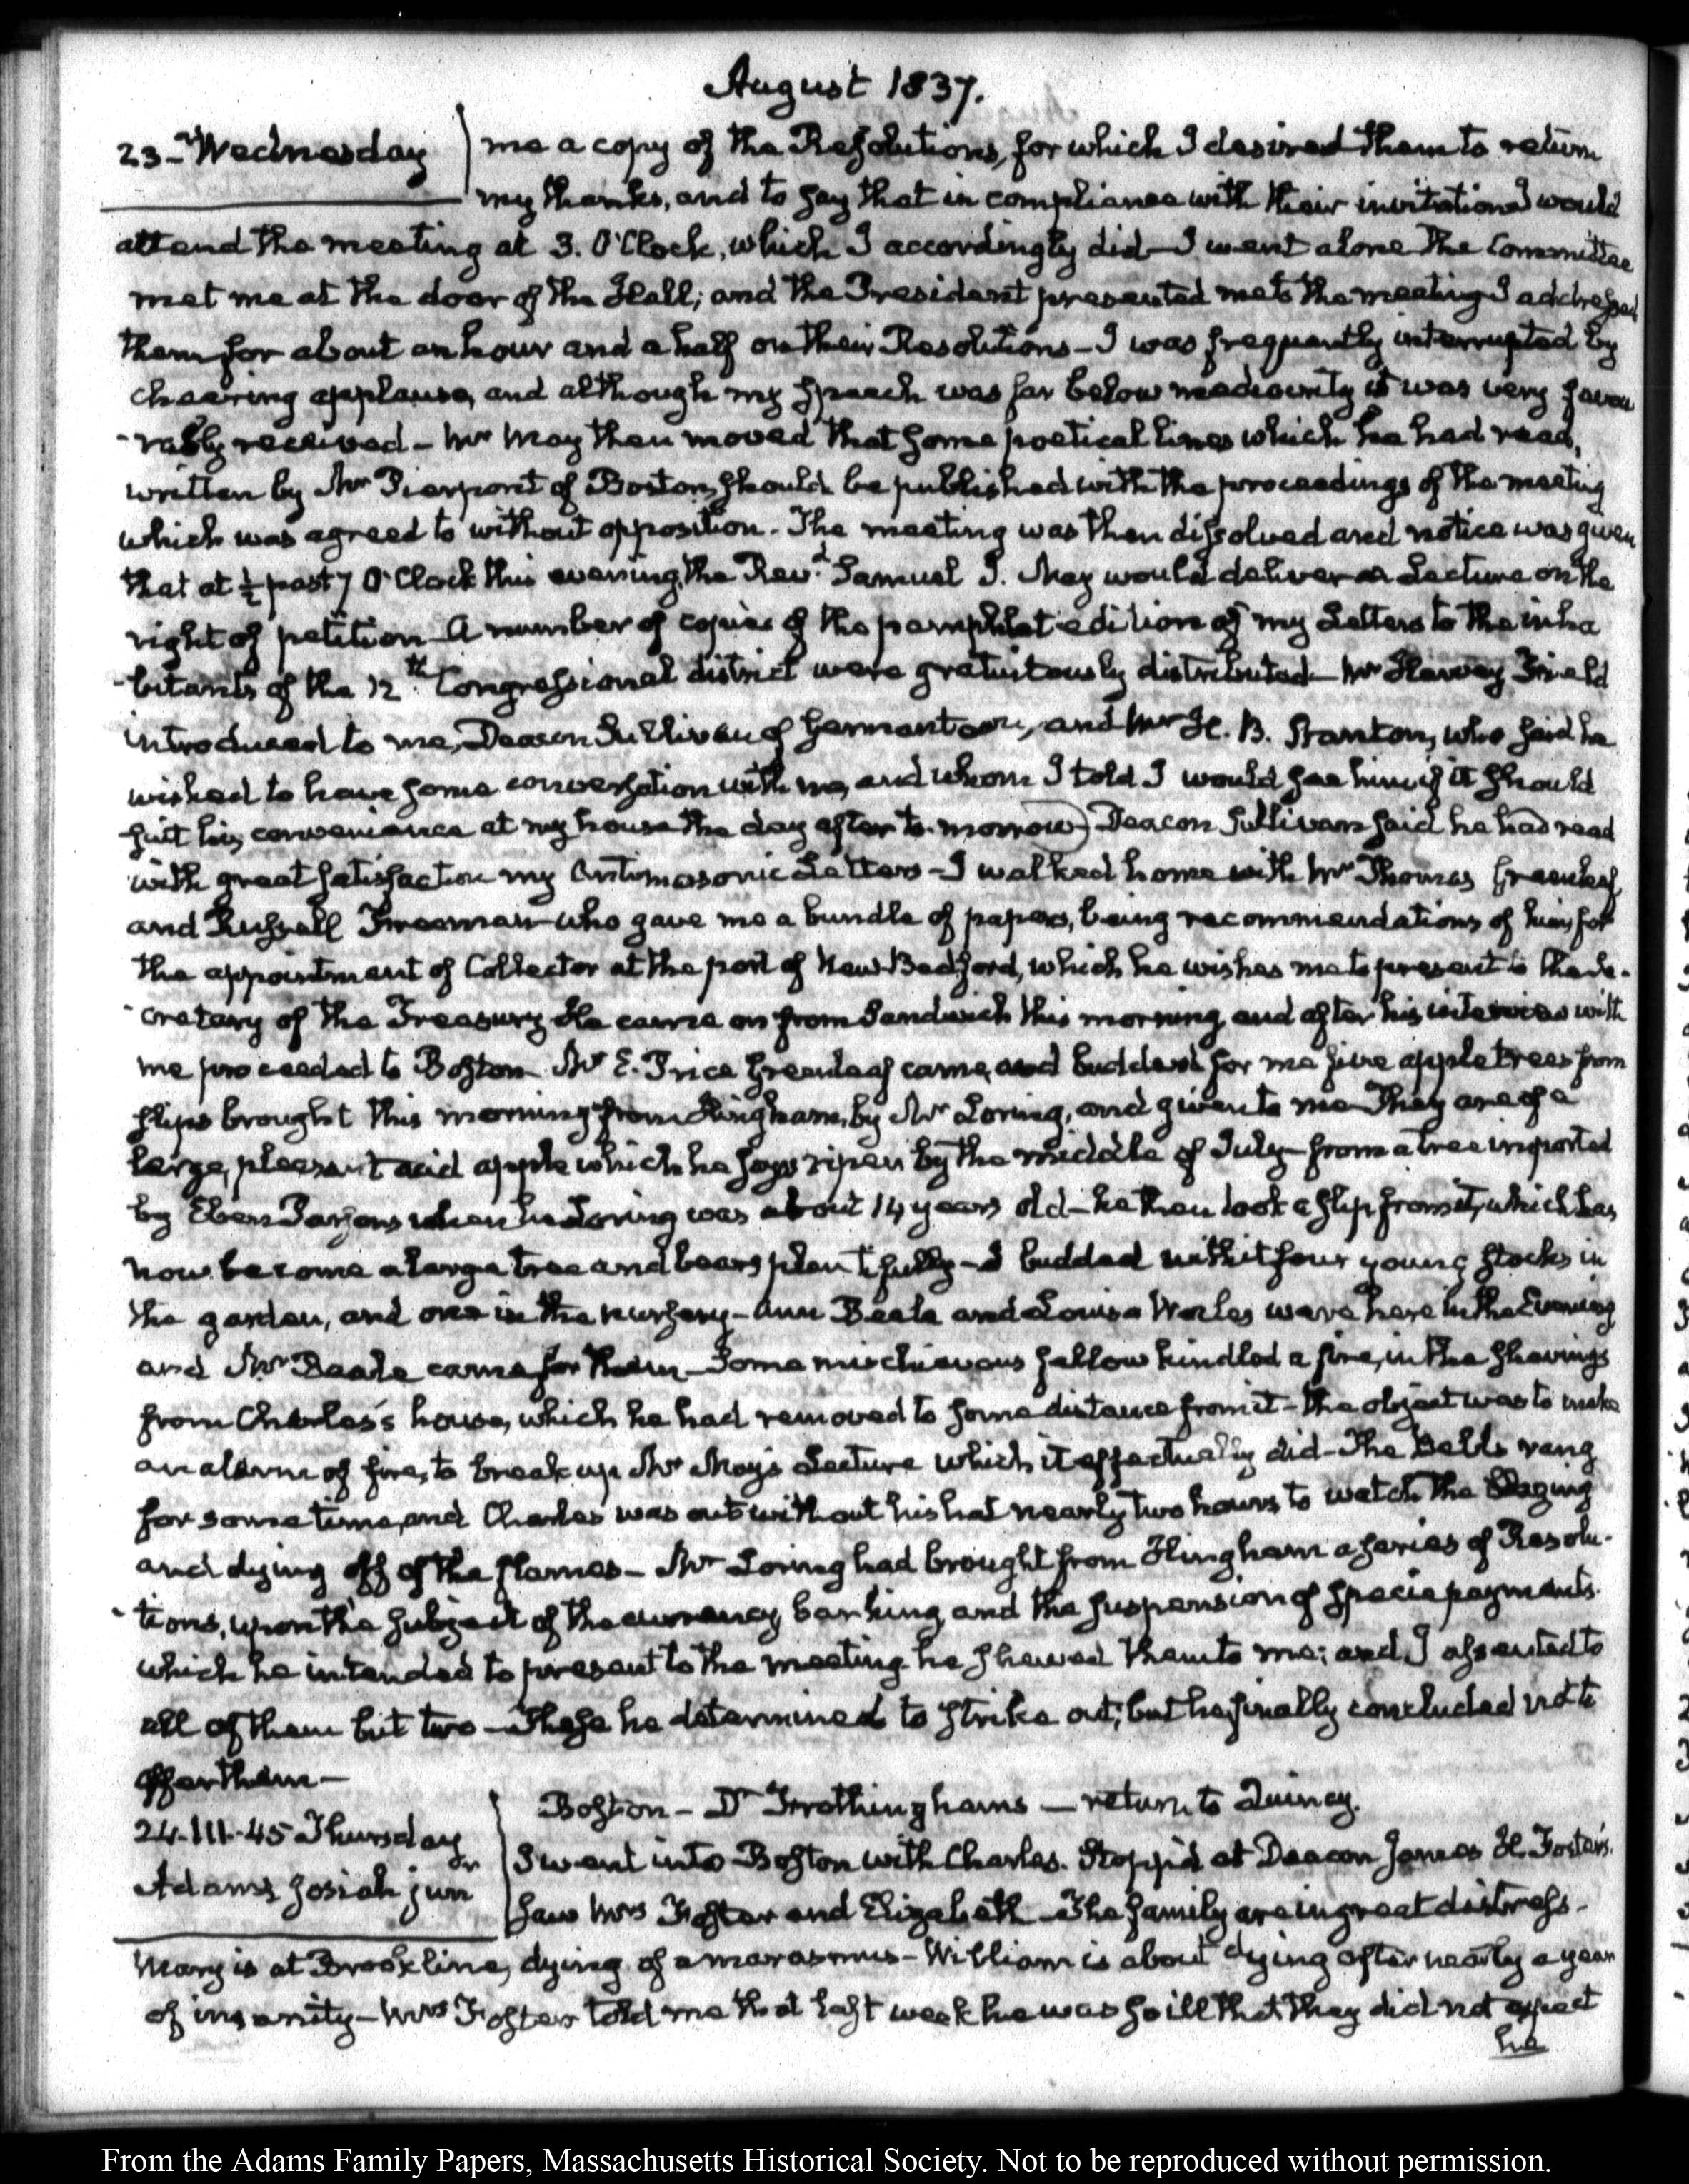 August 1837.
23 - Wednesday
me a copy of the Resolutions, for which I desired them to return
my thanks, and to say that in compliance with their invitation I would
attend the meeting at 3. O'Clock, which I accordingly did - I went alone The Committee
met me at the door of the Hall; and the President presented me to the meeting I addressed
them for about an hour and a half on their Resolutions - I was frequently interrupted by
cheering applause, and although my speech was far below mediocrity it was very favou
-rably received - Mr May then moved that some poetical lines which he had read,
written by Mr Pierpont of Boston, should be published with the proceedings of the meeting
which was agreed to without opposition. The meeting was then dissolved and notice was given
that at ½ past 7 O'Clock this evening, the Revd Samuel J. May would deliver a Lecture on the
right of petition A number of copies of the pamphlet edition of my Letters to the inha
-bitants of the 12th Congressional district were gratuitously distributed - Mr Harvey Field
introduced to me, Deacon Sullivan of Germantown, and Mr H. B. Stanton, who said he
wished to have some conversation with me, and whom I told I would see him if it should
suit his convenience at my house the day after to-morrow) Deacon Sullivan said he had read
with great satisfaction my Antimasonic Letters - I walked home with Mr Thomas Greenleaf
and Russell Freeman who gave me a bundle of papers, being recommendations of him for
the appointment of Collector at the port of New Bedford, which he wishes me to present to the Se-
-cretary of the Treasury He came on from Sandwich this morning and after his interview with
me proceeded to Boston Mr E. Price Greenleaf came, and budded for me five apple trees from
slips brought this morning from Hingham, by Mr Loring, and given to me They are of a
large, pleasant acid apple which he says ripen by the middle of July - from a tree imported
by Eben Parsons when he Loring was about 14 years old - he then took a slip from it, which has
now become a large tree and bears plentifully - I budded with it four young stocks in
the garden, and one in the nursery - Ann Beale and Louisa were here in the Evening
and Mr Beale came for them - Some mischievous fellow kindled a fire, in the shavings
from Charles's house, which he had removed to some distance from it - the object was to make
an alarm of fire, to break up Mr May's Lecture which it effectually did - The Bells rang
for some time, and Charles was out without his hat nearly two hours to watch the blazing
and dying off of the flames - Mr Loring had brought from Hingham a series of Resolu-
-tions, upon the subject of the currency banking and the suspension of specie payments
which he intended to present to the meeting. he shewed them to me; and I assented to
all of them but two - These he determined to strike out; but he finally concluded not to
offer them -
24. III. 45 Thursday
Adams Josiah jun
Boston - Dr Frothinghams - return to Quincy.
I went into Boston with Charles. Stopp'd at Deacon James H. Foster's.
Saw Mrs Foster and Elizabeth - The family are in great distress -
Mary is at Brookline, dying of a marasmus - William is about dying after nearly a year
of insanity - Mrs Foster told me that last week he was so ill that they did not expect
he
From the Adams Family Papers, Massachusetts Historical Society. Not to be reproduced without permission.